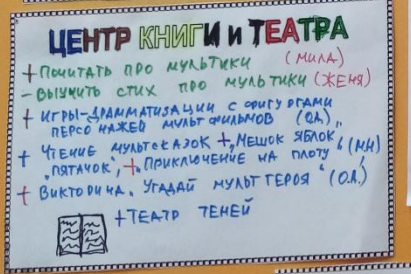 ЦЕНТР КНИГИ и ТЕАТРА
+ ПОЧИТАТЬ ПРО МУЛЬТИКИ (МИЛА)
- ВЫУЧИТЬ СТИХ ПРО МУЛЬТИКИ (ЖЕНЯ)
+ ИГРЫ-ДРАММАТИЗАЦИИ С ФИГУРГАМИ
ПЕРСОНАЖЕЙ МУЛЬТФИЛЬМОВ (О.А.)
+ ЧТЕНИЕ МУЛЬТСКАЗОК +„МЕШОК ЯБЛОК",
„ПЯТАЧОК", +„ПРИКЛЮЧЕНИЕ НА ПЛОТУ" (М.Н)
+ ВИКТОРИНА „УГАДАЙ МУЛЬТГЕРОЯ" (О.А.)
+ ТЕАТР ТЕНЕЙ